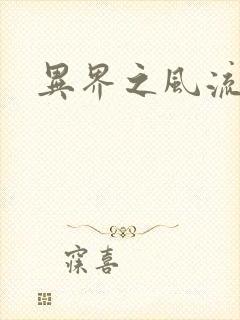 異界之風流
寀喜